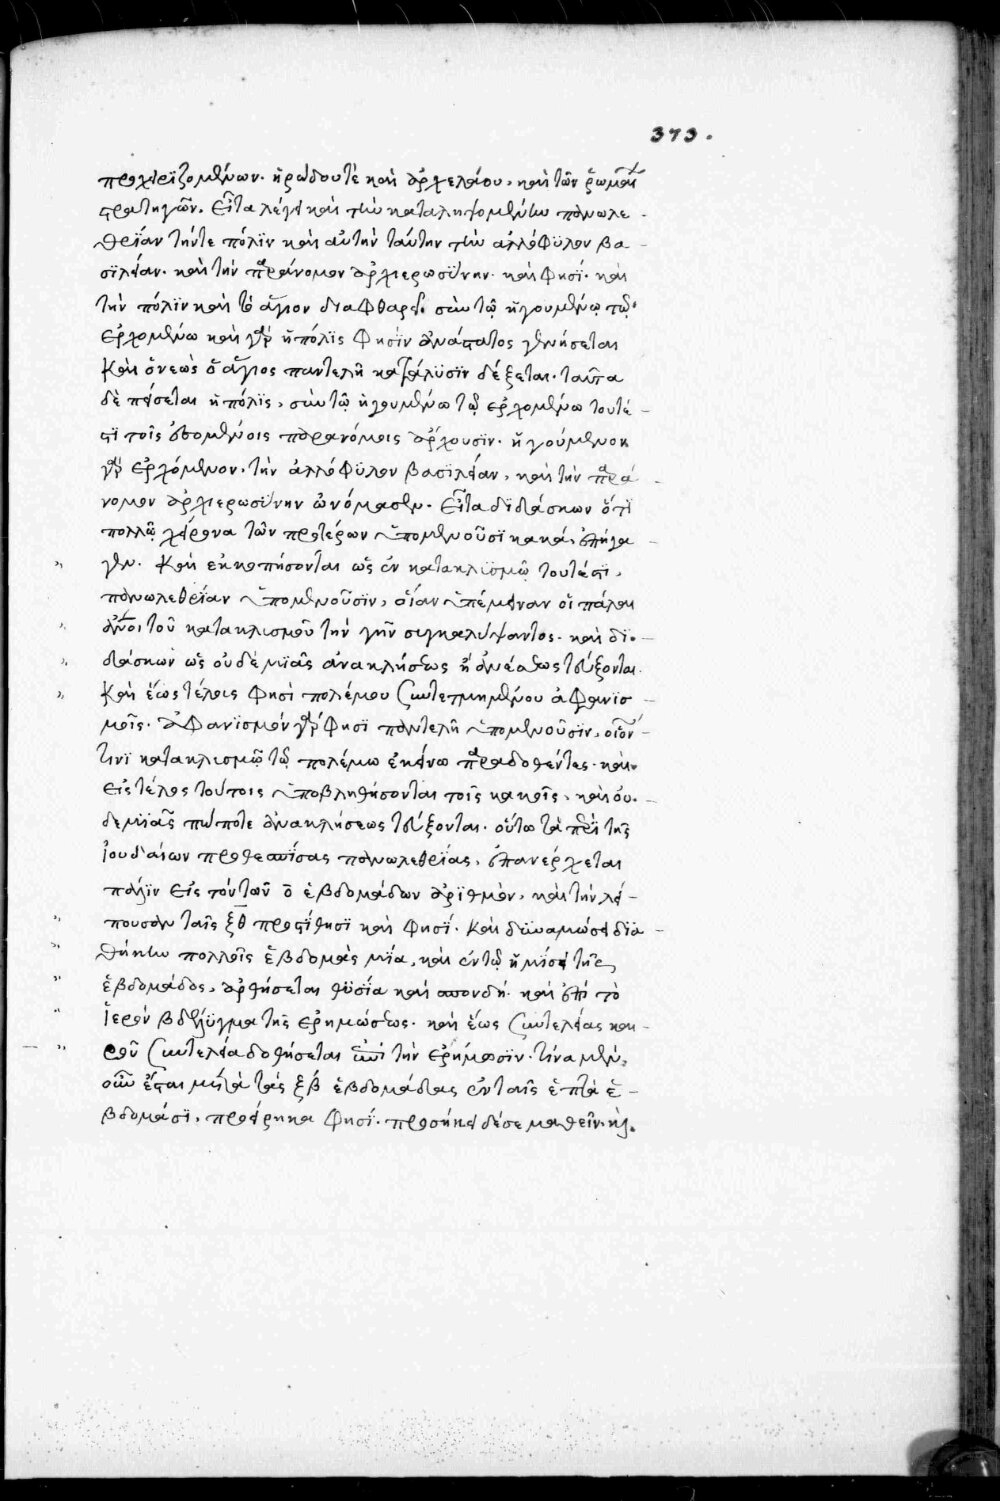 373.
προχειριζομένων. ἡρώδου τὲ καὶ ἀρχελάου, καὶ τῶν ῥωμαί
στρατηγῶν. Εἶτα λέγει καὶ τὴν καταληψομένην πανωλε -
θρίαν τήντε πόλϊν καὶ αὐτὴν ταύτην τὴν ἀλλόφϋλον βα -
σϊλείαν. καὶ τὴν παράνομον ἀρχιερωσύνην. καὶ φησί. καὶ
τὴν πόλϊν καὶ τὸ ἅγιον διαφθαρεῖ. σὺν τῷ ἡγουμένῳ τῷ.
ἐρχομένω καὶ γὰρ ἡ πόλϊς φησὶν ἀνάστατος γενήσεται
Καὶ ὁ νεὼς ὁ ἅγιος παντελῆ κατάλϋσϊν δέξεται. ταῦτα
δὲ πείσεται ἡ πόλϊς, σὺν τῷ ἡγουμένω τῷ ἐρχομένω τουτέ -
στϊ τοῖς ἐσομένοις παρανόμοις ἄρχουσϊν. ἡγούμενον
γὰρ ἐρχόμενον. τὴν ἀλλόφϋλον βασϊλείαν, καὶ τὴν παρά -
νομον ἀρχιερωσύνην ὠνόμασεν. Εἶτα διδάσκων ὅτϊ
πολλῷ χείρονα τῶν προτέρων ὑπομενοῦσϊ κακά, ἐπήγα -
γεν. Καὶ ἐκκοπήσονται ὡς ἐν κατακλϋσμῷ τουτέστϊ,
πανωλεθρίαν ὑπομενοῦσϊν, οἵαν ὑπέμειναν οἱ πάλαι
ἄνοι τοῦ κατακλυσμοῦ τὴν γῆν συγκαλύψαντος. καὶ δϊ -
δάσκων ὡς οὐδεμϊᾶς ἀνακλήσεως ἢ ἀνέσεως τεύξονται.
Καὶ ἕως τέλους φησὶ πολέμου συντετμημένου ἀφανϊσ -
μοῖς. ἀφανϊσμὸν γὰρ φησϊ παντελῆ ὑπομενοῦσϊν, οἷον -
τινϊ κατακλυσμῷ τῷ πολέμω ἐκείνω παραδοθέντες. καὶ
εἰς τέλος τούτοις ὑποβληθήσονται τοῖς κακοῖς, καὶ οὐ -
δεμϊᾶς πώποτε ἀνακλήσεως τεύξονται. οὕτω τὰ περὶ τῆς
Ἰουδαίων προθεσπίσας πανωλεθρίας, ἐπανέρχεται
πάλϊν εἰς τὸν τῶν ο ἑβδομάδων ἀρϊθμὸν, καὶ τὴν λεί -
πουσαν ταῖς ξθ προστίθησϊ καὶ φησί. Καὶ δϋναμώσει δϊα -
θήκην πολλοῖς ἑβδομὰς μία, καὶ ἐν τῷ ἡμίσει τῆς
ἑβδομάδος, ἀρθήσεται θϋσία καὶ σπονδή. καὶ ἐπὶ τὸ
Ἱερὸν βδέλϋγμα τῆς ἐρημώσεως. καὶ ἕως συντελείας και -
ροῦ συντέλεια δοθήσεται ἐπὶ τὴν ἐρήμωσϊν. τίνα μὲν,
οὖν ἔσται μετὰ τὰς ξβ ἑβδομάδας ἐν ταῖς ἑπτὰ ἑ -
βδομάσϊ, προείρηκα φησί. προσήκει δέ σε μαθεῖν. κỳ